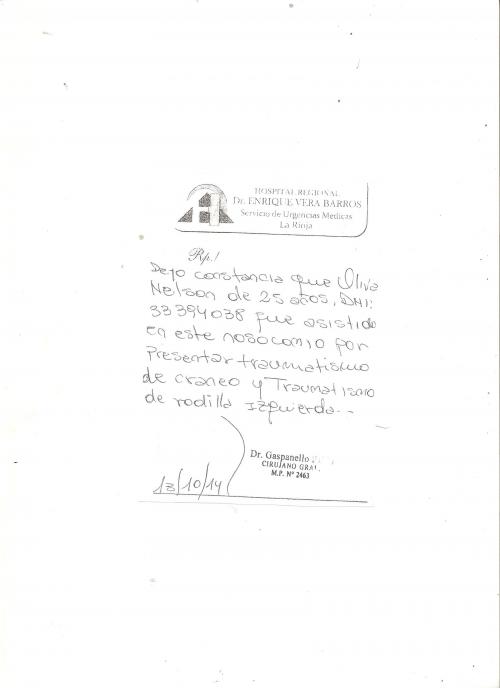 HOSPITAL REGIONAL
Dr. ENRIQUE VERA BARROS
Servicio de Urgencias Médicas
La Rioja
Rp./
Dejo constancia que Oliva
Nelson de 25 años, DNI:
33394038 fue asistido
en este nosocomio por
presentar traumatismo
de craneo y Traumatismo
de rodilla Izquierda..
Dr. Gaspanello
CIRUJANO GRAL.
M.P. Nº 2463
13/10/14